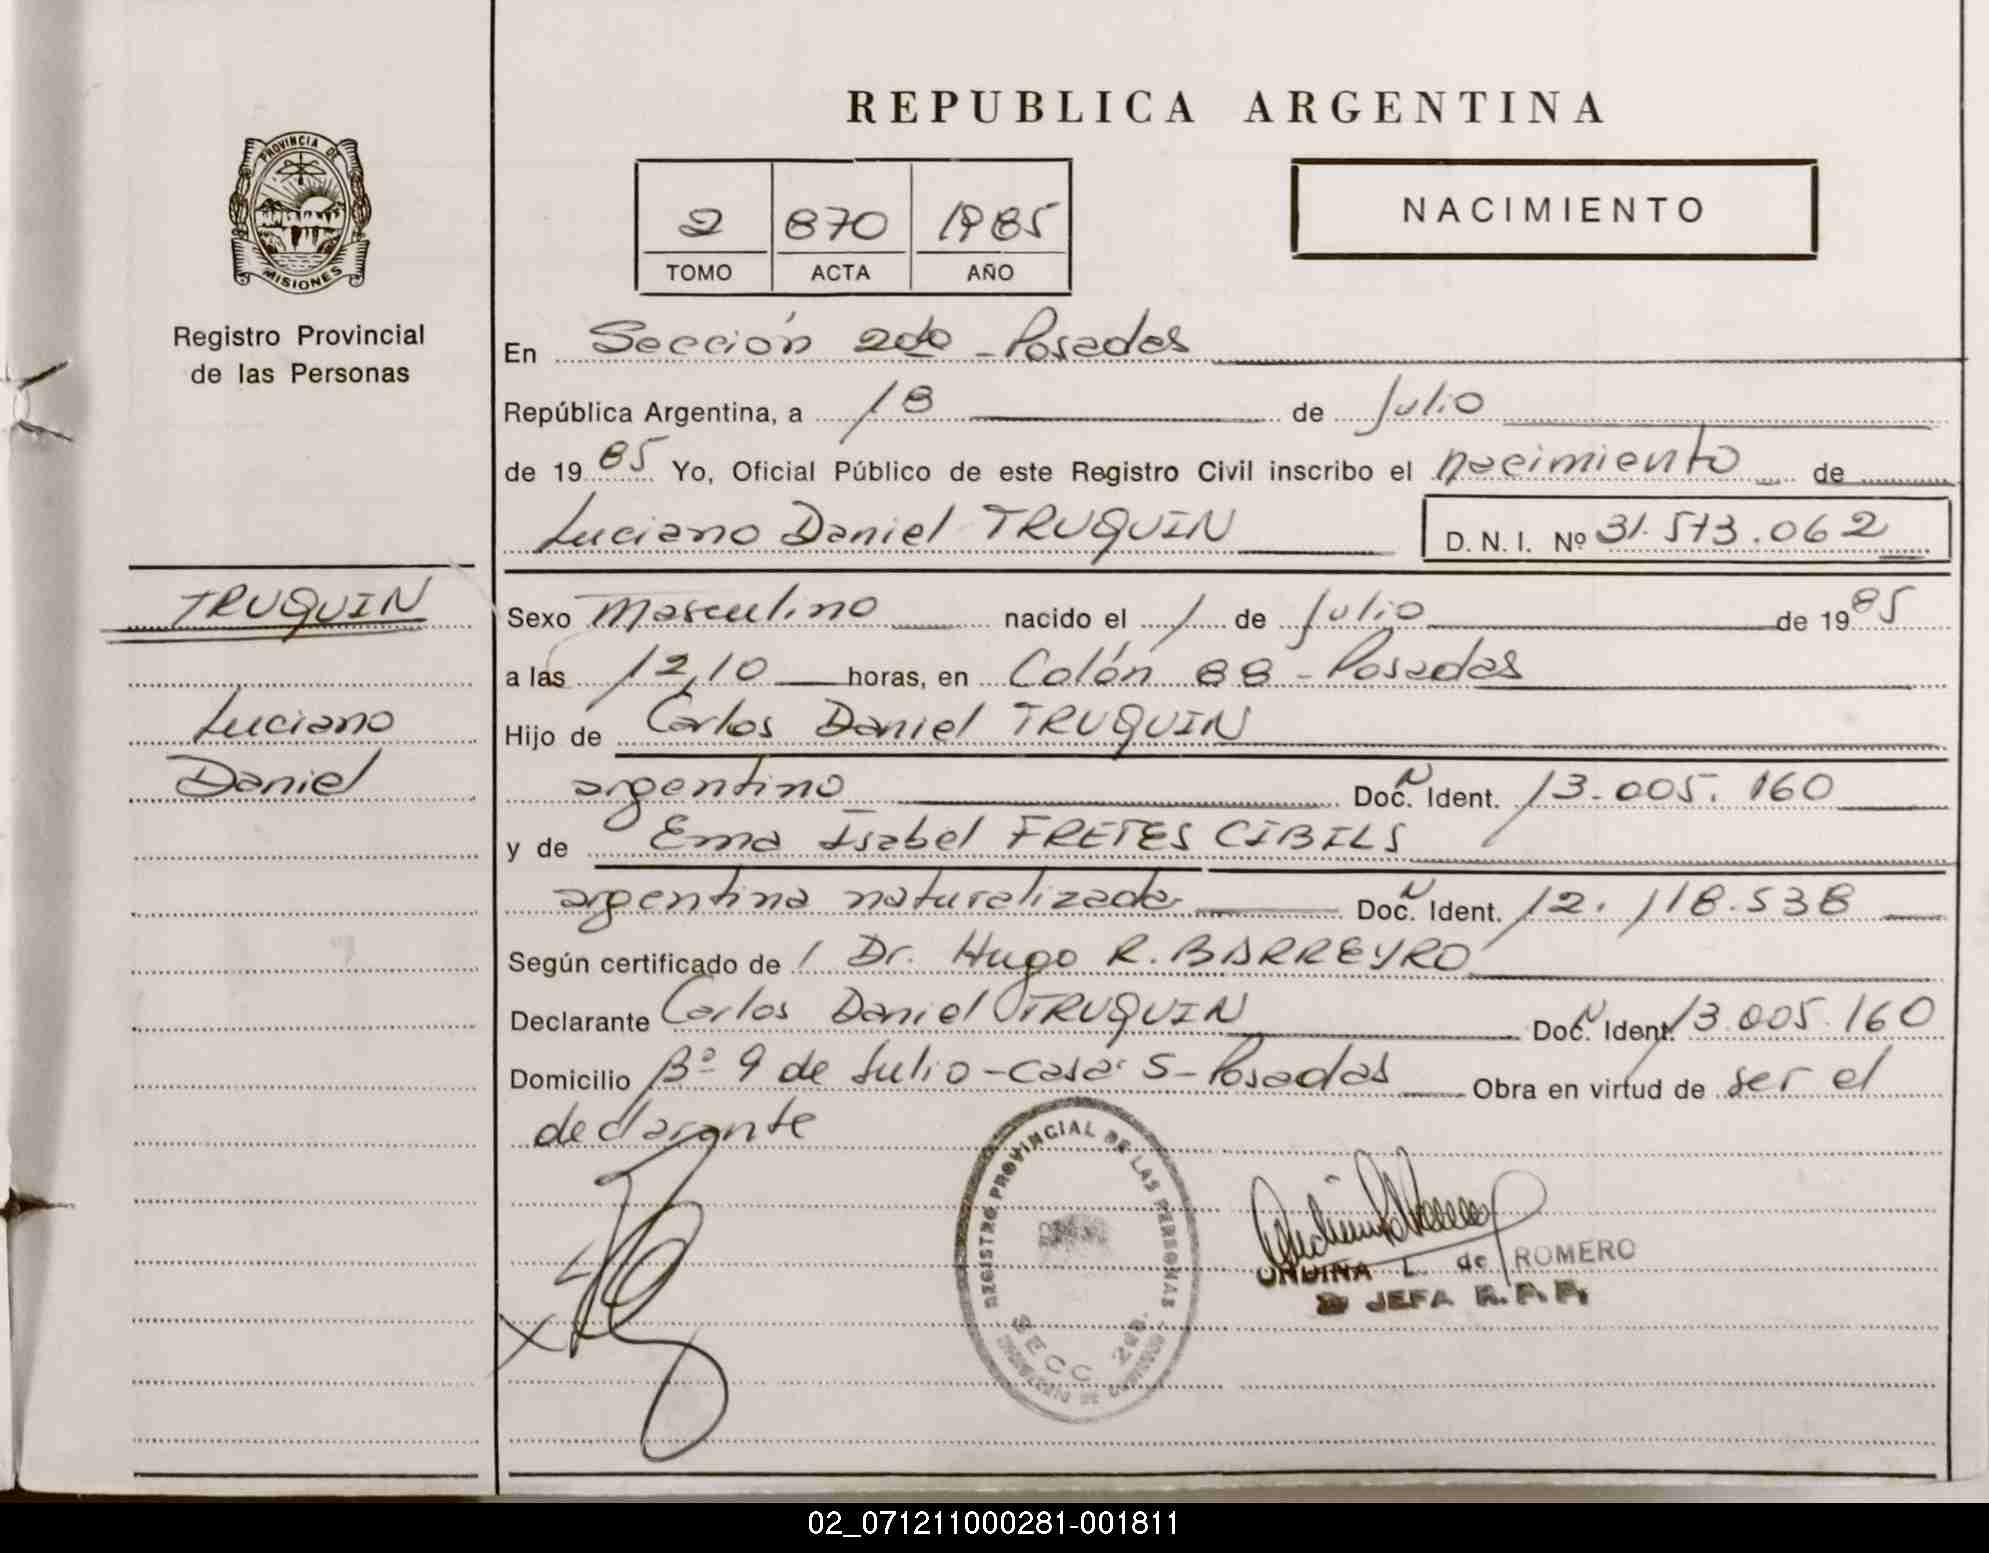 REPUBLICA ARGENTINA
PROVINCIA DE
MISIONES
Registro Provincial
de las Personas
2 870 1985
TOMO ACTA AÑO
NACIMIENTO
En Sección 2do - Posadas
República Argentina, a 18 de Julio
de 1985 Yo, Oficial Público de este Registro Civil inscribo el nacimiento de
Luciano Daniel TRUQUIN D. N. I. Nº 31.573.062
TRUQUIN
Luciano
Daniel
Sexo Masculino nacido el 1 de Julio de 1985
a las 12,10 horas, en Colón 88 - Posadas
Hijo de Carlos Daniel TRUQUIN
argentino Doc. Ident. 13.005.160
y de Ema Isabel FRETES CIBILS
argentina naturalizada Doc. Ident. 12.118.538
Según certificado de / Dr. Hugo R. BARREYRO
Declarante Carlos Daniel TRUQUIN Doc. Ident. 13.005.160
Domicilio Bº 9 de Julio - casa: 5 - Posadas Obra en virtud de ser el
declarante
REGISTRO PROVINCIAL DE LAS PERSONAS
SECC 2da.
ONDINA L. de ROMERO
JEFA R. P. P.
02_071211000281-001811